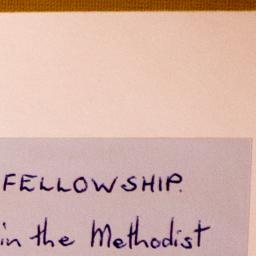 FELLOWSHIP.
in the Methodist